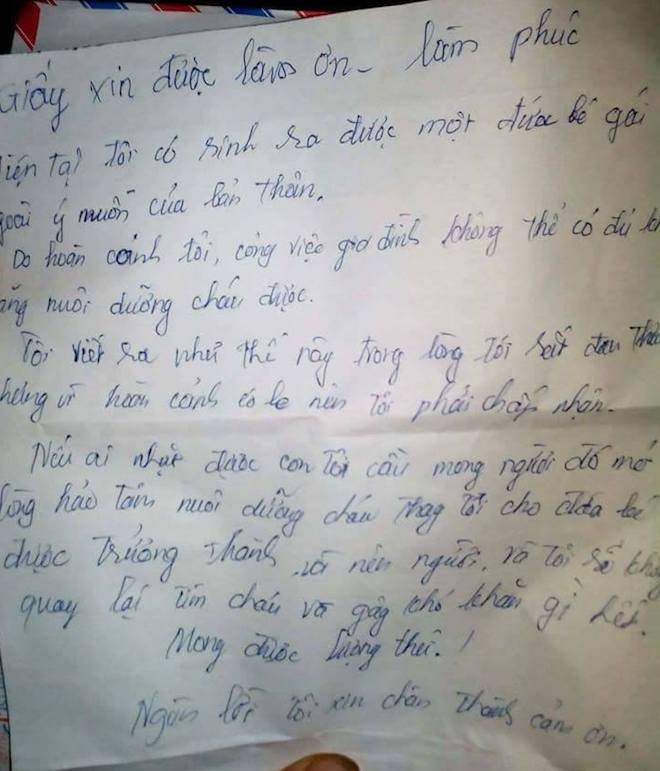 Giấy xin được làm ơn - làm phúc
Hiện tại tôi có sinh ra được một đứa bé gái
ngoài ý muốn của bản thân.
Do hoàn cảnh tôi, công việc gia đình không thể có đủ k
ăng nuôi dưỡng cháu được.
Tôi viết ra như thế này trong lòng tôi rất đau
nhưng vì hoàn cảnh éo le nên tôi phải chấp nhận.
Nếu ai nhặt được con tôi cầu mong người đó mở
lòng hảo tâm nuôi dưỡng cháu thay tôi cho đứa bé
được trưởng thành và nên người. và tôi sẽ không
quay lại tìm cháu và gây khó khăn gì hết.
Mong được lượng thứ.!
Ngàn lời tôi xin chân thành cảm ơn.